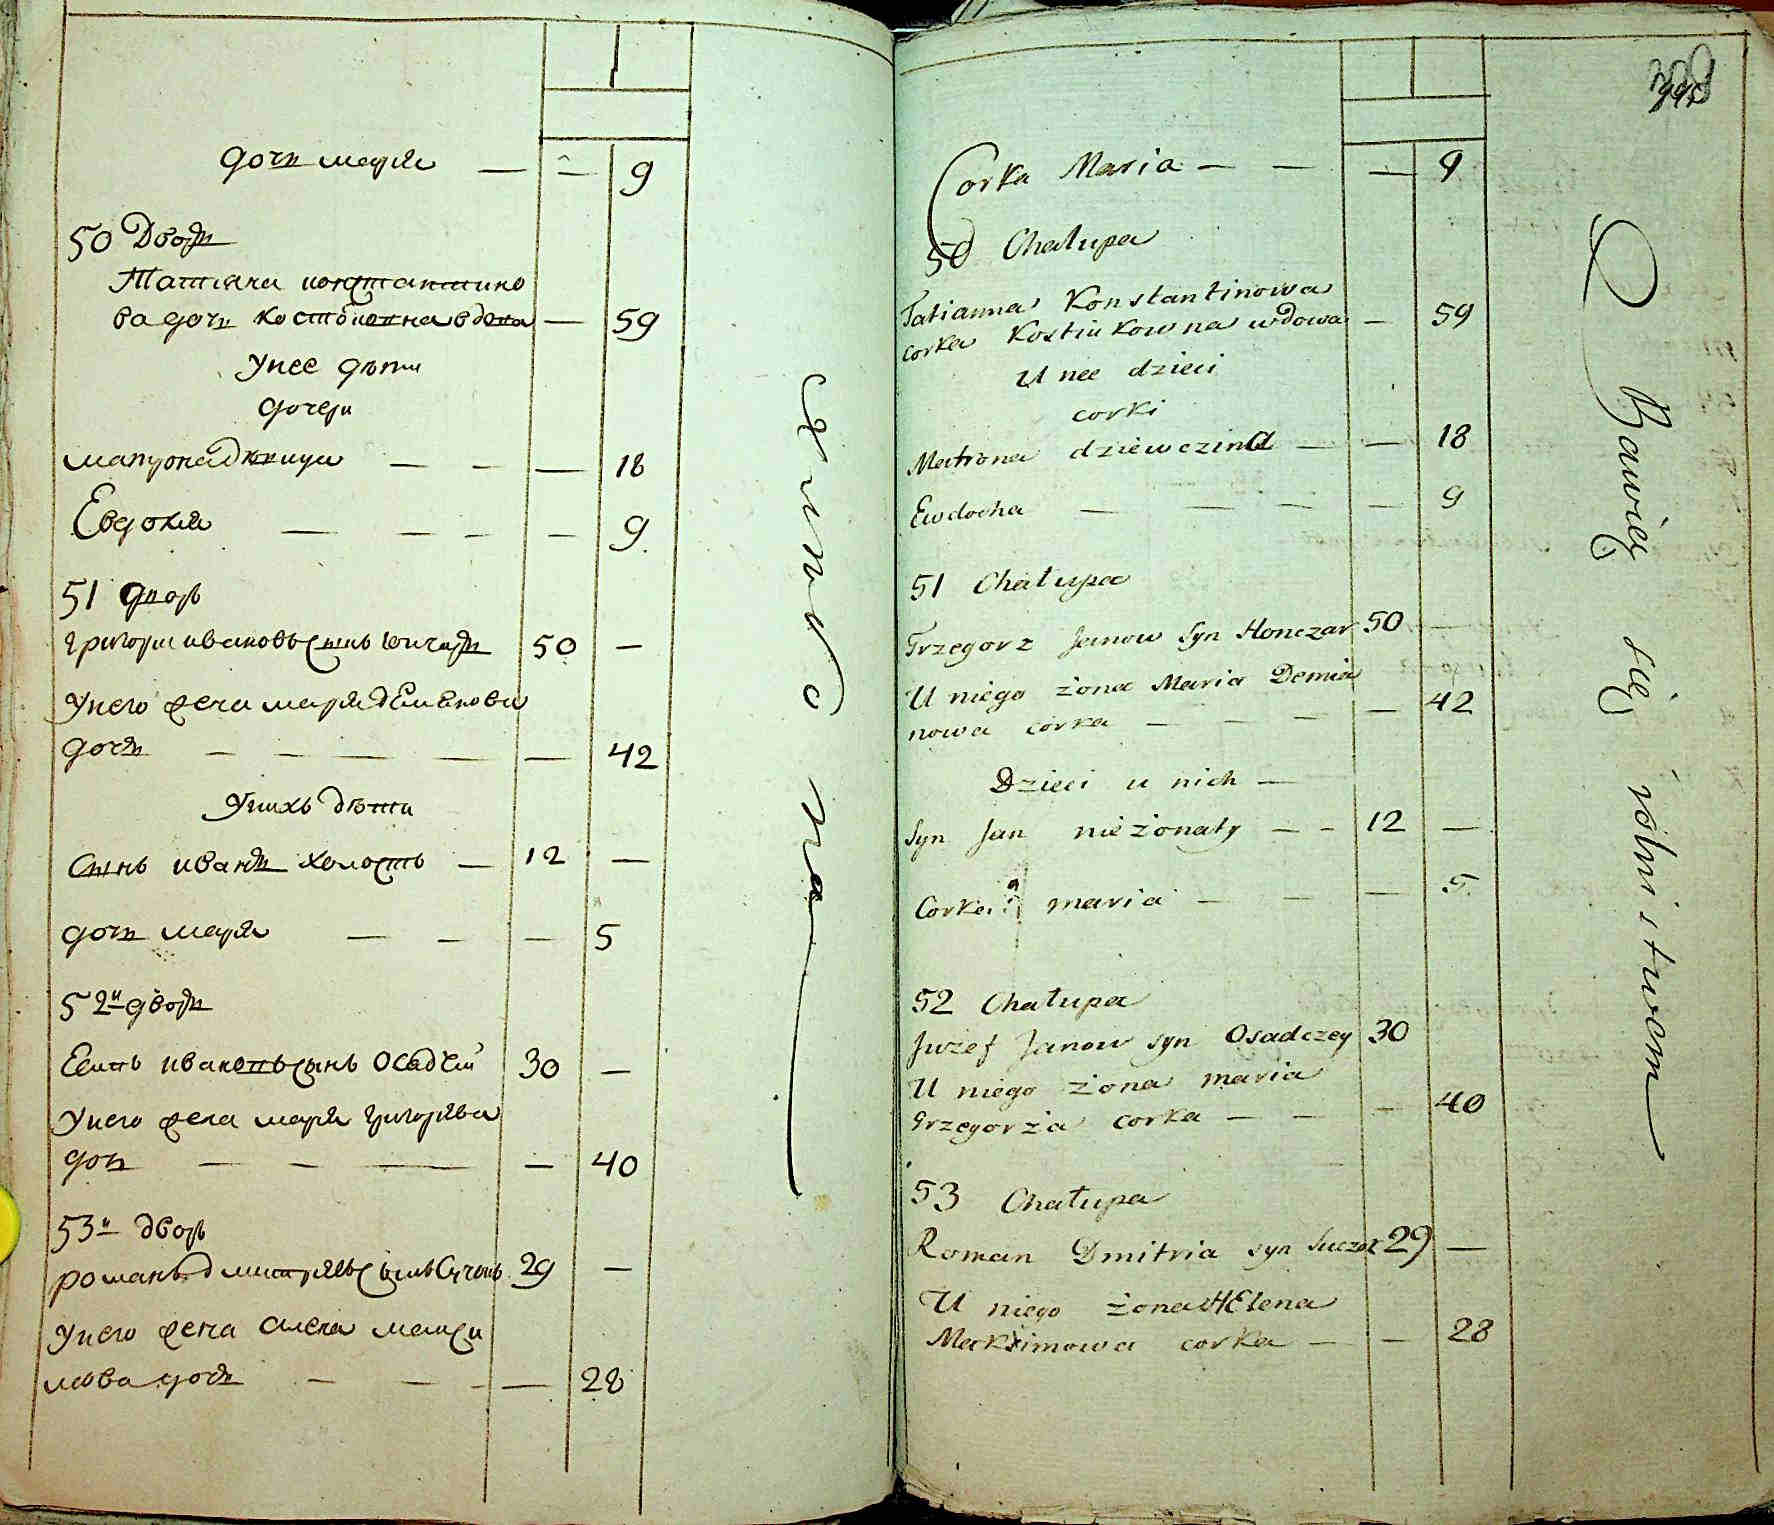 дочь марья — — 9
50 Дворъ
Татіяна константино
ва дочь костюковна вдова — 59
У нее дѣти
дочери
матрона дѣвица — — — 18
Евдокия — — — — 9
51 дворъ
григорий ивановъ сынъ гончаръ 50 —
У него жена марья демянова
дочь — — — — — 42
У нихъ дѣти
сынъ иванъ холостъ — 12 —
дочь марья — — — 5
52й дворъ
Есипъ ивановъ сынъ осадчей 30 —
У него жена марья григорьева
дочь — — — — 40
53й дворъ
романъ дмитриевъ сынъ 29 —
У него жена олена макси
мова дочь — — — — 28
на
Corka Maria — — — 9
50 Chałupa
Tatianna Konstantinowa
corka Kostiukowna wdowa — 59
U nee dzieci
corki
Matrona dziewczina — — 18
Ewdocha — — — — 9
51 Chałupa
Grzegorz Janow syn Honczar 50 —
U niego żona Maria Demia
nowa corka — — — — 42
Dzieci u nich —
syn Jan nieżonaty — — 12 —
Corka maria — — — 5
52 Chałupa
Juzef Janow syn Osadczey 30
U niego żona maria
Grzegorża corka — — — 40
53 Chałupa
Roman Dmitria syn Suczok 29 —
U niego żona HElena
Maksimowa corka — — 28
Bawią się rolnistwem